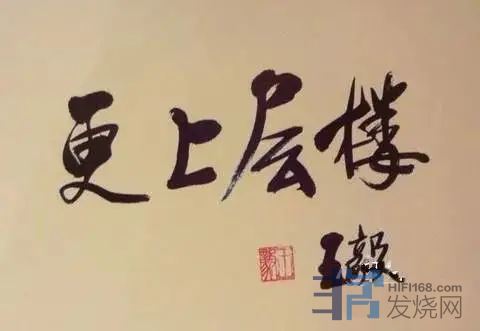 更上层楼
王毅
HIFI168.com
发烧网